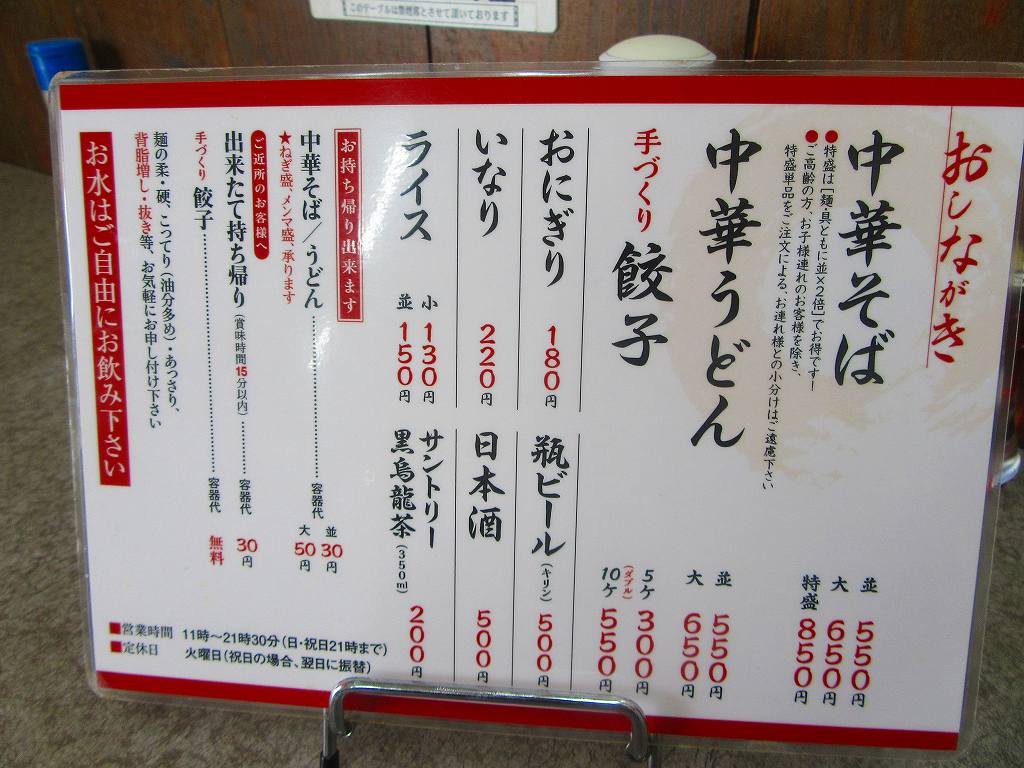 このテーブルは禁煙席とさせて頂いております
おしながき
中華そば
並 550円
大 650円
特盛 850円
●●特盛は［麺・具ともに並×2倍］でお得です！
ご高齢の方、お子様連れのお客様を除き、
特盛単品をご注文による、お連れ様との小分けはご遠慮下さい
中華うどん
並 550円
大 650円
手づくり 餃子
5ケ 300円
(ダブル) 10ケ 550円
おにぎり 180円
瓶ビール(キリン) 500円
いなり 220円
日本酒 500円
ライス
小 130円
並 150円
サントリー
黒烏龍茶(350ml) 200円
お持ち帰り出来ます
中華そば／うどん 容器代 並 30円
大 50円
★ねぎ盛、メンマ盛、承ります
ご近所のお客様へ
出来たて持ち帰り(賞味時間15分以内) 容器代 30円
手づくり 餃子 容器代 無料
麺の柔・硬、こってり(油分多め)・あっさり、
背脂増し・抜き等、お気軽にお申し付け下さい
お水はご自由にお飲み下さい
■営業時間 11時〜21時30分(日・祝日21時まで)
■定休日 火曜日(祝日の場合、翌日に振替)